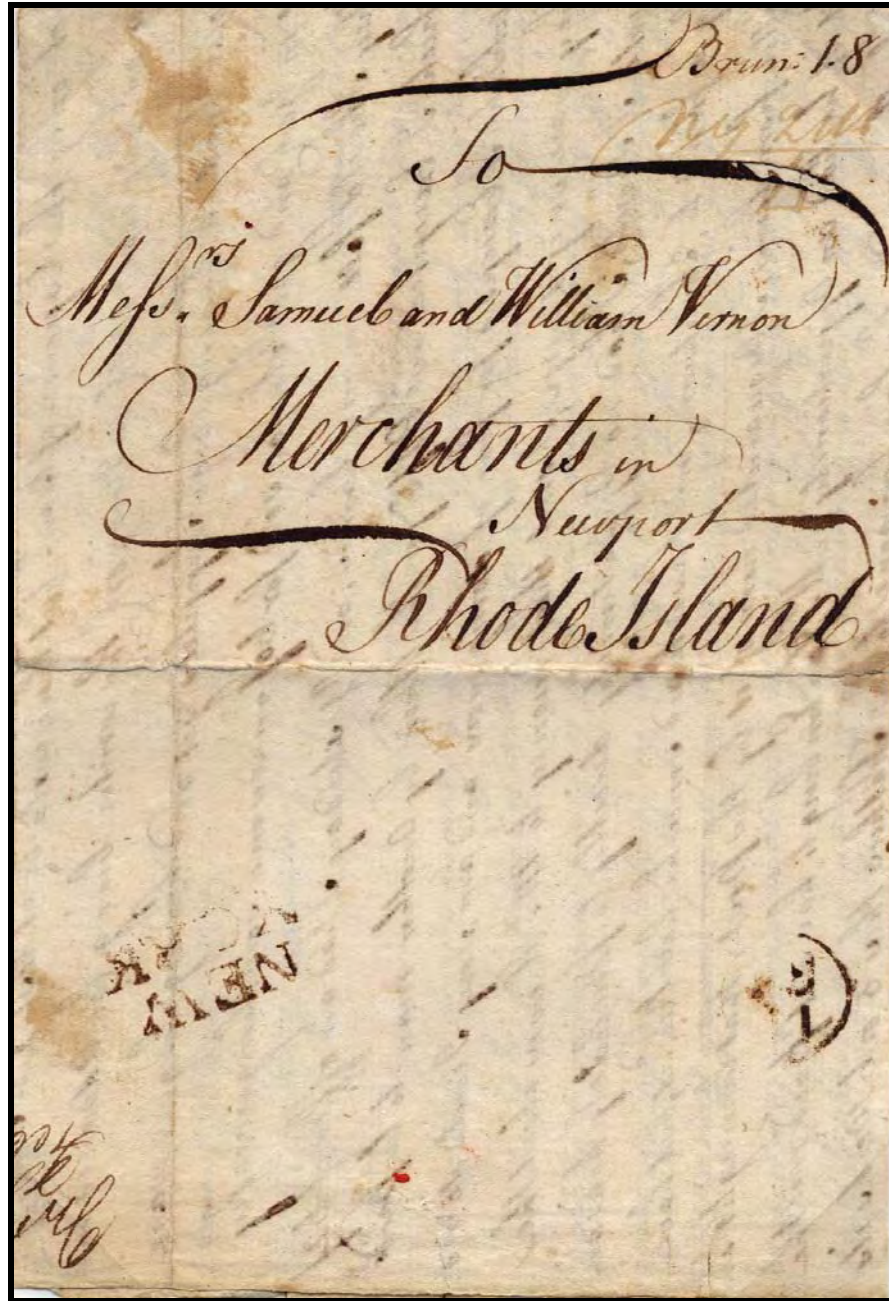 Brun: 1.8
To
Mess.rs Samuel and William Vernon
Merchants in
Newport
Rhode Island
NEW
YORK